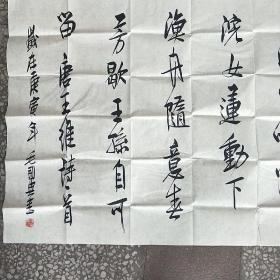 浣女莲動下
漁舟隨意春
芳歇王孫自可
留唐王維詩一首
歲在庚寅年